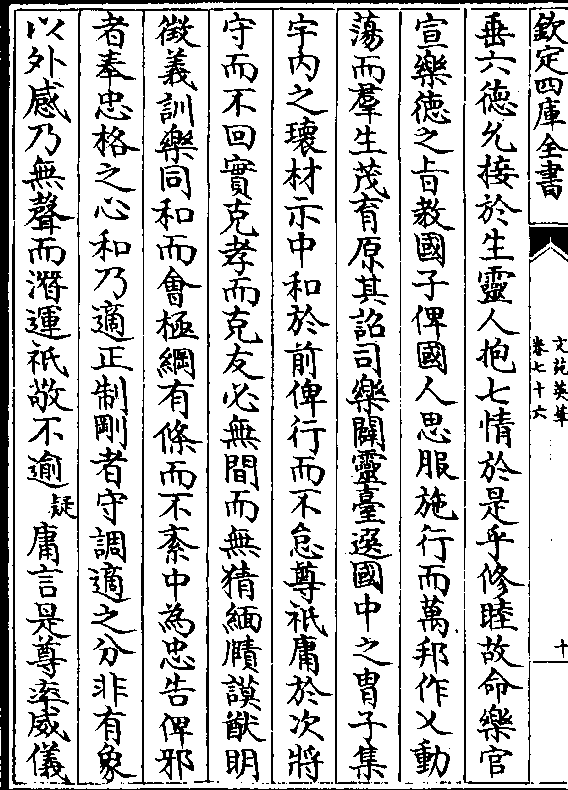 欽定四庫全書
文苑英華
卷七十六
十
垂六德允接於生靈人抱七情於是乎修睦故命樂官
宣樂徳之㫖教國子俾國人思服施行而萬邦作乂動
蕩而羣生茂有原其詔司樂闢靈臺選國中之胄子集
宇内之瓌材示中和於前俾行而不怠尊祇庸於次將
守而不回實克孝而克友必無間而無猜緬賾謨猷明
徴義訓樂同和而會極綱有條而不紊中為忠告俾邪
者奉忠格之心和乃適正制剛者守調適之分非有象
以外感乃無聲而潛運祇敬不逾疑庸言是尊率威儀